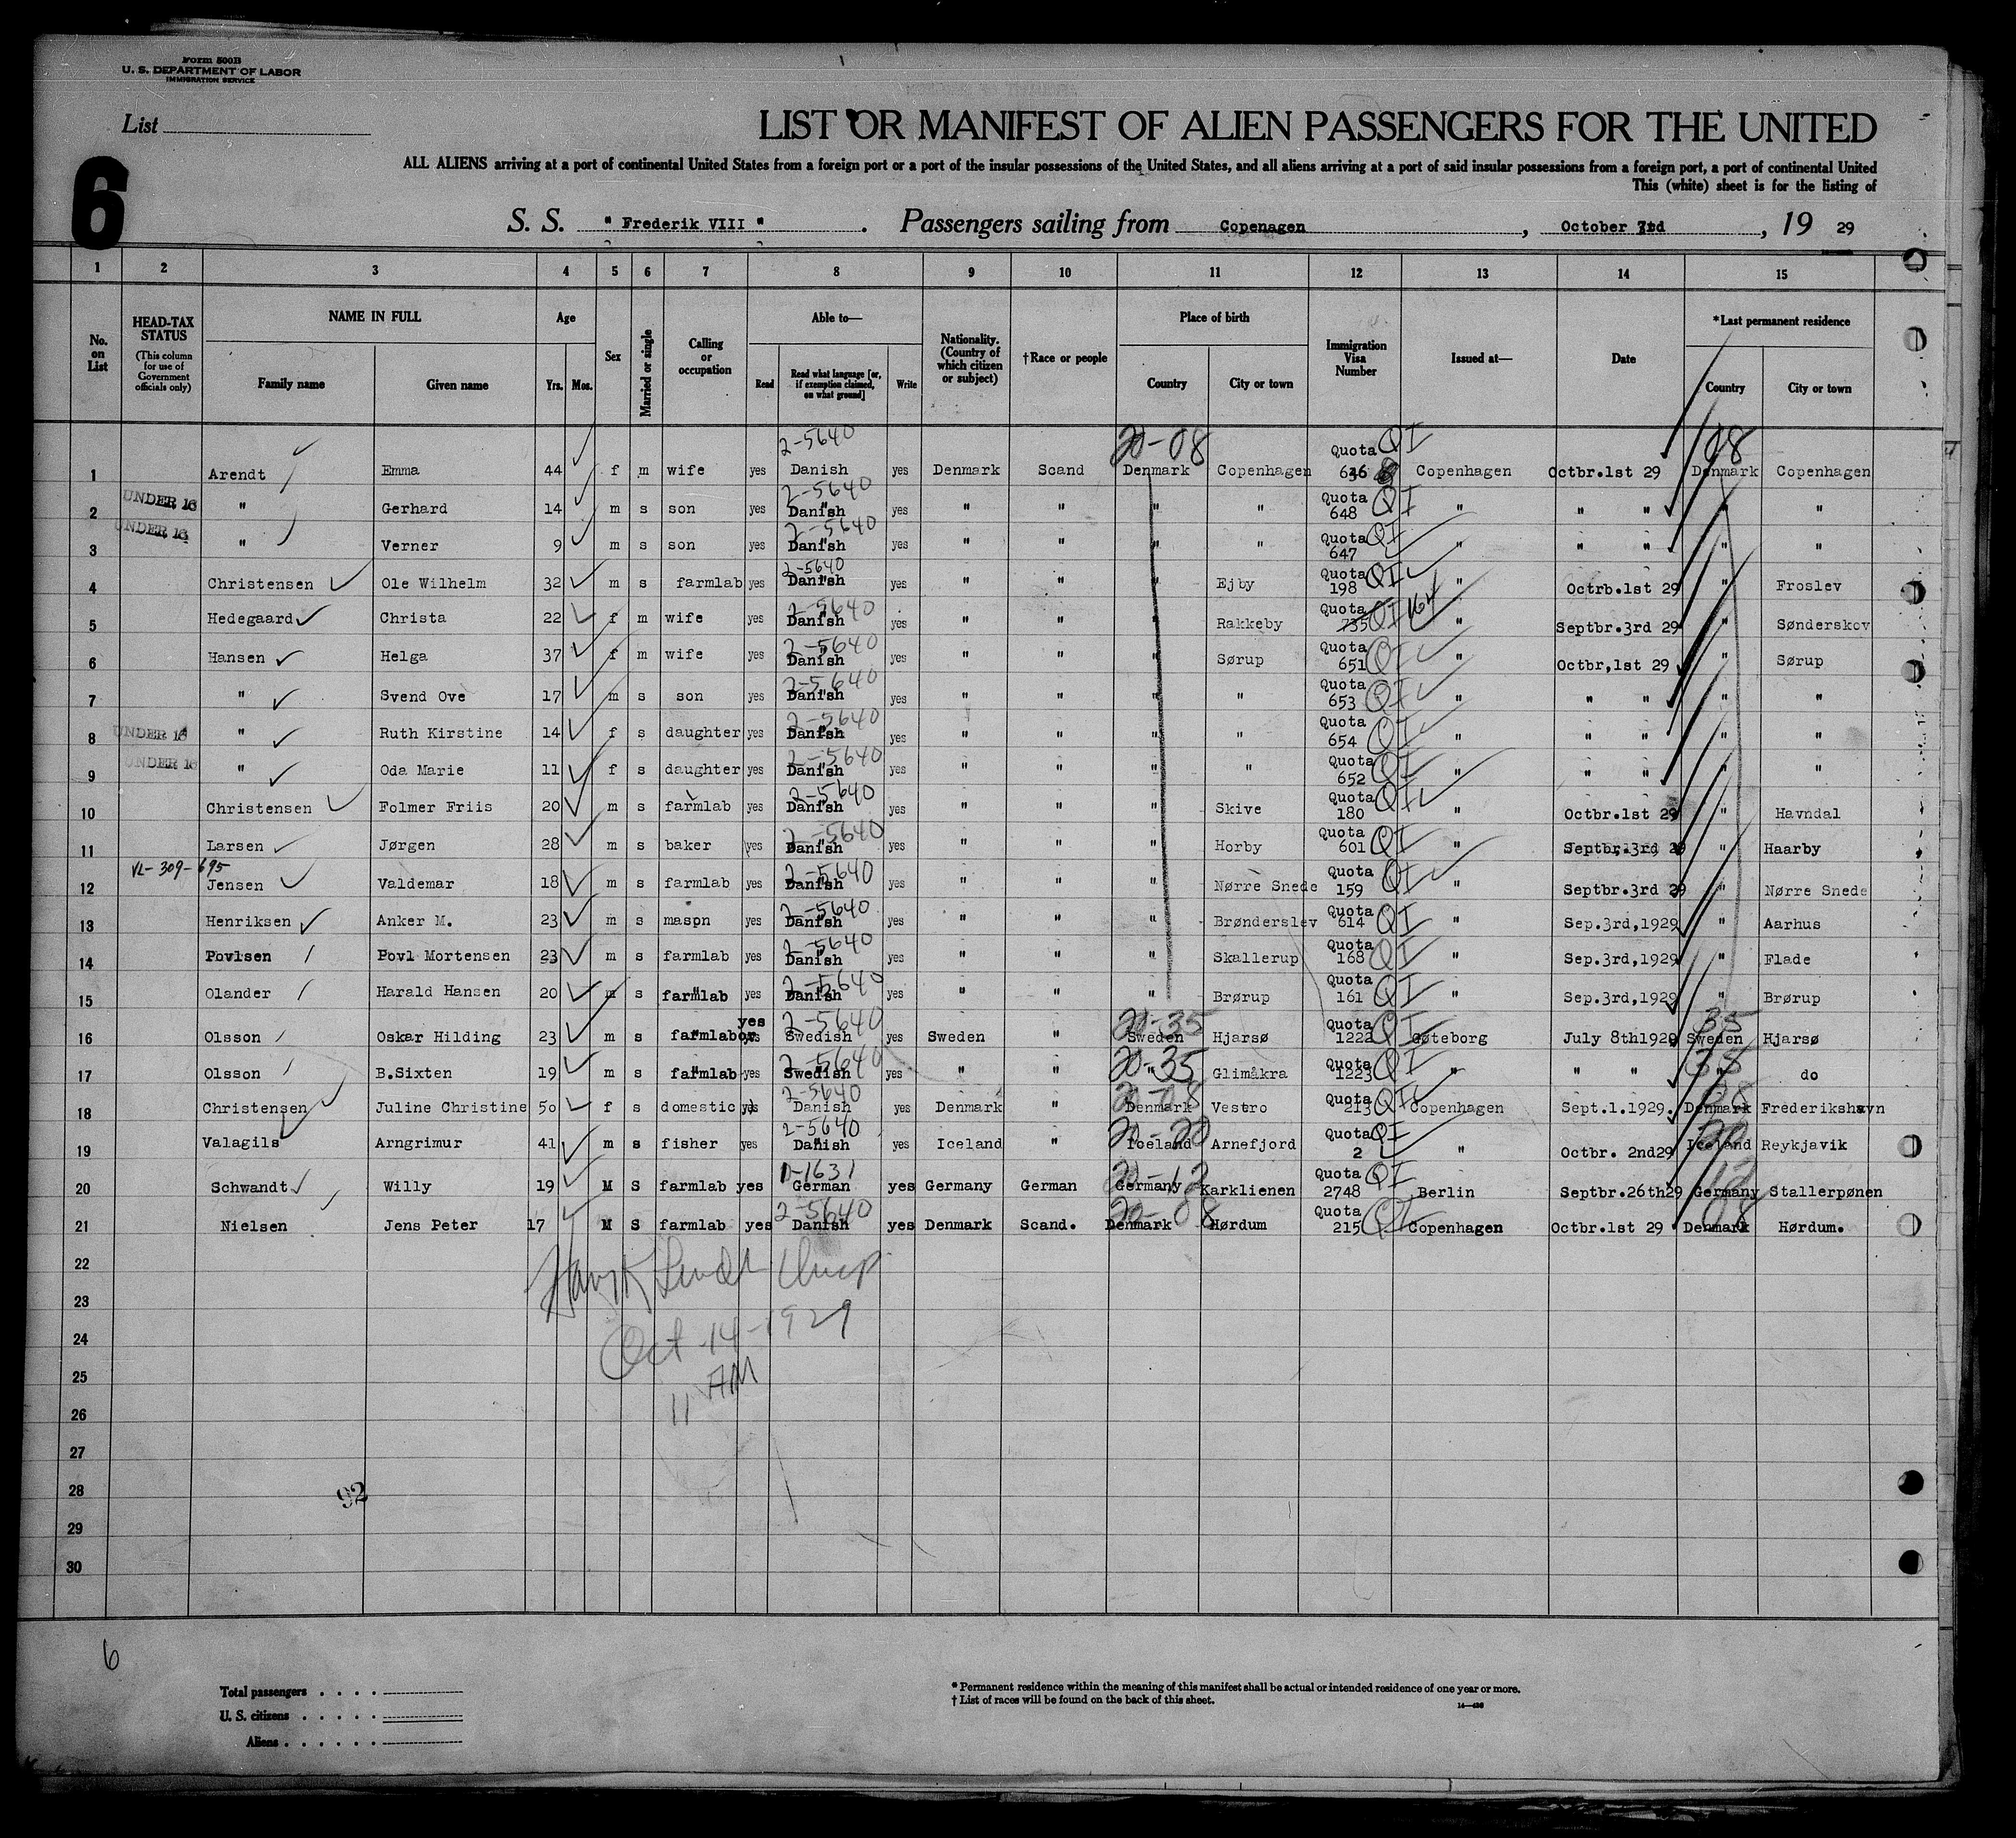 Form 500B
U. S. DEPARTMENT OF LABOR
IMMIGRATION SERVICE
List
LIST OR MANIFEST OF ALIEN PASSENGERS FOR THE UNITED
ALL ALIENS arriving at a port of continental United States from a foreign port or a port of the insular possessions of the United States, and all aliens arriving at a port of said insular possessions from a foreign port, a port of continental United
This (white) sheet is for the listing of
6
S. S. " Frederik VIII " . Passengers sailing from Copenagen , October , 19 29
1 2 3 4 5 6 7 8 9 10 11 12 13 14 15
No. on List
HEAD-TAX STATUS (This column for use of Government officials only)
NAME IN FULL Family name Given name
Age Yrs. Mos.
Sex
Married or single
Calling or occupation
Able to— Read Read what language [or, if exemption claimed, on what ground] Write
Nationality. (Country of which citizen or subject)
†Race or people
Place of birth Country City or town
Immigration Visa Number
Issued at—
Date
*Last permanent residence Country City or town
1 Arendt Emma 44 f m wife yes 2-5640 Danish yes Denmark Scand 20-08 Denmark Copenhagen Quota QI Copenhagen Octbr.1st 29 08 Denmark Copenhagen
2 UNDER 16 " Gerhard 14 m s son yes 2-5640 Danish yes " " " " Quota 648 QI " " " " "
3 UNDER 16 " Verner 9 m s son yes 2-5640 Danish yes " " " " Quota 647 QI " " " " "
4 Christensen Ole Wilhelm 32 m s farmlab yes 2-5640 Danish yes " " " Ejby Quota 198 QI " Octrb.1st 29 " Froslev
5 Hedegaard Christa 22 f m wife yes 2-5640 Danish yes " " " Rakkeby Quota 735 QI 164 " Septbr.3rd 29 " Sønderskov
6 Hansen Helga 37 f m wife yes 2-5640 Danish yes " " " Sørup Quota 651 QI " Octbr,1st 29 " Sørup
7 " Svend Ove 17 m s son yes 2-5640 Danish yes " " " " Quota 653 QI " " " " "
8 UNDER 16 " Ruth Kirstine 14 f s daughter yes 2-5640 Danish yes " " " " Quota 654 QI " " " " "
9 UNDER 16 " Oda Marie 11 f s daughter yes 2-5640 Danish yes " " " " Quota 652 QI " " " " "
10 Christensen Folmer Friis 20 m s farmlab yes 2-5640 Danish yes " " " Skive Quota 180 QI " Octbr.1st 29 " Havndal
11 Larsen Jørgen 28 m s baker yes 2-5640 Danish yes " " " Horby Quota 601 QI " Septbr.3rd 29 " Haarby
12 VL-309-695 Jensen Valdemar 18 m s farmlab yes 2-5640 Danish yes " " " Nørre Snede Quota 159 QI " Septbr.3rd 29 " Nørre Snede
13 Henriksen Anker M. 23 m s maspn yes 2-5640 Danish yes " " " Brønderslev Quota 614 QI " Sep.3rd,1929 " Aarhus
14 Povlsen Povl Mortensen 23 m s farmlab yes 2-5640 Danish yes " " " Skallerup Quota 168 QI " Sep.3rd,1929 " Flade
15 Olander Harald Hansen 20 m s farmlab yes 2-5640 Danish yes " " " Brørup Quota 161 QI " Sep.3rd,1929 " Brørup
16 Olsson Oskar Hilding 23 m s farmlabor yes 2-5640 Swedish yes Sweden " 20-35 Sweden Hjarsø Quota 1222 QI Gøteborg July 8th1929 35 Sweden Hjarsø
17 Olsson B.Sixten 19 m s farmlab yes 2-5640 Swedish yes " " 20-35 " Glimåkra Quota 1223 QI " " " 35 " do
18 Christensen Juline Christine 50 f s domestic yes 2-5640 Danish yes Denmark " 20-08 Denmark Vestro Quota 213 QI Copenhagen Sept.1.1929. Denmark Frederikshavn
19 Valagils Arngrimur 41 m s fisher yes 2-5640 Danish yes Iceland " 20-20 Iceland Arnefjord Quota 2 QI " Octbr. 2nd29 20 Iceland Reykjavik
20 Schwandt Willy 19 M S farmlab yes 1-1631 German yes Germany German 20-12 Germany Karklienen Quota 2748 QI Berlin Septbr.26th29 12 Germany Stallerpønen
21 Nielsen Jens Peter 17 M S farmlab yes 2-5640 Danish yes Denmark Scand. 20-08 Denmark Hørdum Quota 215 QI Copenhagen Octbr.1st 29 08 Denmark Hørdum.
22
23
24
25
26
27
28
29
30
Oct 14-1929
11 AM
92
6
Total passengers
U. S. citizens
Aliens
* Permanent residence within the meaning of this manifest shall be actual or intended residence of one year or more.
† List of races will be found on the back of this sheet.